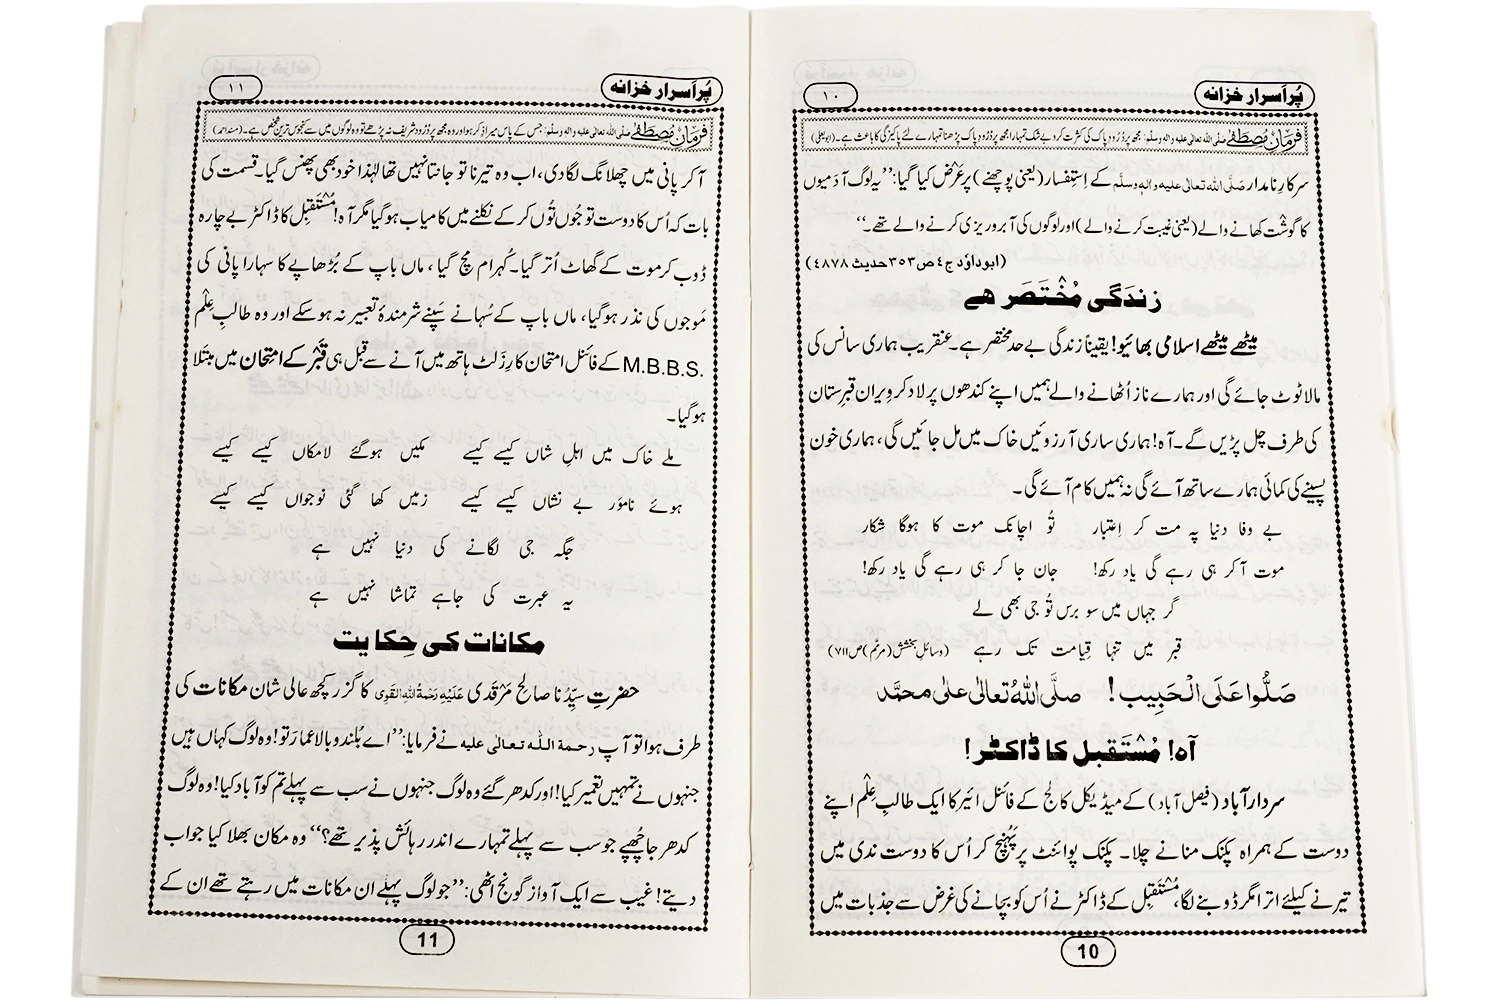 پُراَسرار خزانہ
۱۰
فرمانِ مُصطَفٰے صلی اللہ تعالٰی علیہ والہ وسلم: مجھ پر دُرُود پاک کی کثرت کرو بے شک تمہارا مجھ پر دُرُود پاک پڑھنا تمہارے لئے پاکیزگی کا باعث ہے۔ (ابویعلی)
سرکارِ نامدار صَلَّی اللہ تعالٰی علیہ والہٖ وسلَّم کے اِستِفسار (یعنی پوچھنے) پر عَرْض کیا گیا: ’’یہ لوگ آدمیوں
کا گوشْت کھانے والے (یعنی غیبت کرنے والے) اور لوگوں کی آبروریزی کرنے والے تھے۔‘‘
(ابوداوٗد ج٤ ص٣٥٣ حدیث ٤٨٧٨)
زندَگی مُخْتَصَر ھے
میٹھے میٹھے اسلامی بھائیو! یقیناً زندگی بے حد مختصر ہے۔ عنقریب ہماری سانس کی
مالا ٹوٹ جائے گی اور ہمارے ناز اُٹھانے والے ہمیں اپنے کندھوں پر لاد کر وِیران قبرِستان
کی طرف چل پڑیں گے۔ آہ! ہماری ساری آرزوئیں خاک میں مل جائیں گی، ہماری خون
پسینے کی کمائی ہمارے ساتھ آئے گی نہ ہمیں کام آئے گی۔
بے وفا دنیا پہ مت کر اِعتبار تُو اچانک موت کا ہوگا شکار
موت آکر ہی رہے گی یاد رکھ! جان جا کر ہی رہے گی یاد رکھ!
گر جہاں میں سو برس تُو جی بھی لے
قبر میں تنہا قِیامت تک رہے (وسائلِ بخشش (مرمّم) ص۷۱۱)
صَلُّوا عَلَی الْحَبِیب! صلَّی اللہُ تعالٰی علٰی محمَّد
آہ! مُسْتَقبِل کا ڈاکٹر!
سردار آباد (فیصل آباد) کے میڈیکل کالج کے فائنل ائیر کا ایک طالبِ عِلْم اپنے
دوست کے ہمراہ پکنک منانے چلا۔ پکنک پوائنٹ پر پَہُنچ کر اُس کا دوست ندی میں
تیرنے کیلئے اترا مگر ڈوبنے لگا، مُسْتَقبِل کے ڈاکٹر نے اُس کو بچانے کی غَرَض سے جذبات میں
10
پُراَسرار خزانہ
۱۱
فرمانِ مُصطَفٰے صلی اللہ تعالٰی علیہ والہ وسلم: جس کے پاس میرا ذکر ہو اور وہ مجھ پر دُرُود شریف نہ پڑھے تو وہ لوگوں میں سے کنجوس ترین شخص ہے۔ (مسند احمد)
آکر پانی میں چھلانگ لگادی، اب وہ تیرنا تو جانتا نہیں تھا لہٰذا خود بھی پھنس گیا۔ قسمت کی
بات کہ اُس کا دوست تو جُوں تُوں کر کے نکلنے میں کامیاب ہوگیا مگر آہ! مُسْتَقْبِل کا ڈاکٹر بے چارہ
ڈوب کر موت کے گھاٹ اُتر گیا۔ کُہرام مچ گیا، ماں باپ کے بُڑھاپے کا سہارا پانی کی
مَوجوں کی نذر ہوگیا، ماں باپ کے سُہانے سَپنے شرمندۂ تعبیر نہ ہوسکے اور وہ طالبِ عِلْم
M.B.B.S. کے فائنل امتحان کا رِزَلٹ ہاتھ میں آنے سے قبل ہی قَبْر کے امتحان میں مبتَلا
ہوگیا۔
ملے خاک میں اہلِ شاں کیسے کیسے مکیں ہوگئے لامکاں کیسے کیسے
ہوئے نامْوَر بے نشاں کیسے کیسے زمیں کھا گئی نوجواں کیسے کیسے
جگہ جی لگانے کی دنیا نہیں ہے
یہ عبرت کی جاہے تماشا نہیں ہے
مکانات کی حِکایت
حضرتِ سیِّدُنا صالح مَرقَدی عَلَیْہِ رَحْمَۃُ اللہِ الْقَوِی کا گزر کچھ عالی شان مکانات کی
طرف ہوا تو آپ رحمۃ اللہ تعالٰی علیہ نے فرمایا: ’’اے بُلند و بالا عمارَتو! وہ لوگ کہاں ہیں
جنہوں نے تمہیں تعمیر کیا! اور کدھر گئے وہ لوگ جنہوں نے سب سے پہلے تم کو آباد کیا! وہ لوگ
کدھر جا چُھپے جو سب سے پہلے تمہارے اندر رہائش پذیر تھے؟‘‘ وہ مکان بھلا کیا جواب
دیتے! غیب سے ایک آواز گونج اُٹھی: ’’جو لوگ پہلے ان مکانات میں رہتے تھے ان کے
11